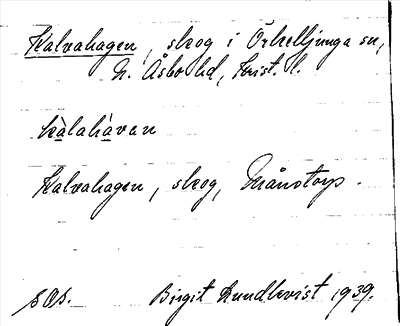 Kalvahagen, skog i Örkelljunga sn,
N. Åsbo hd, Krist. l.
kàlahàvan
Kalvahagen, skog, Månstorp.
s Os.
Birgit Lundkvist 1939.